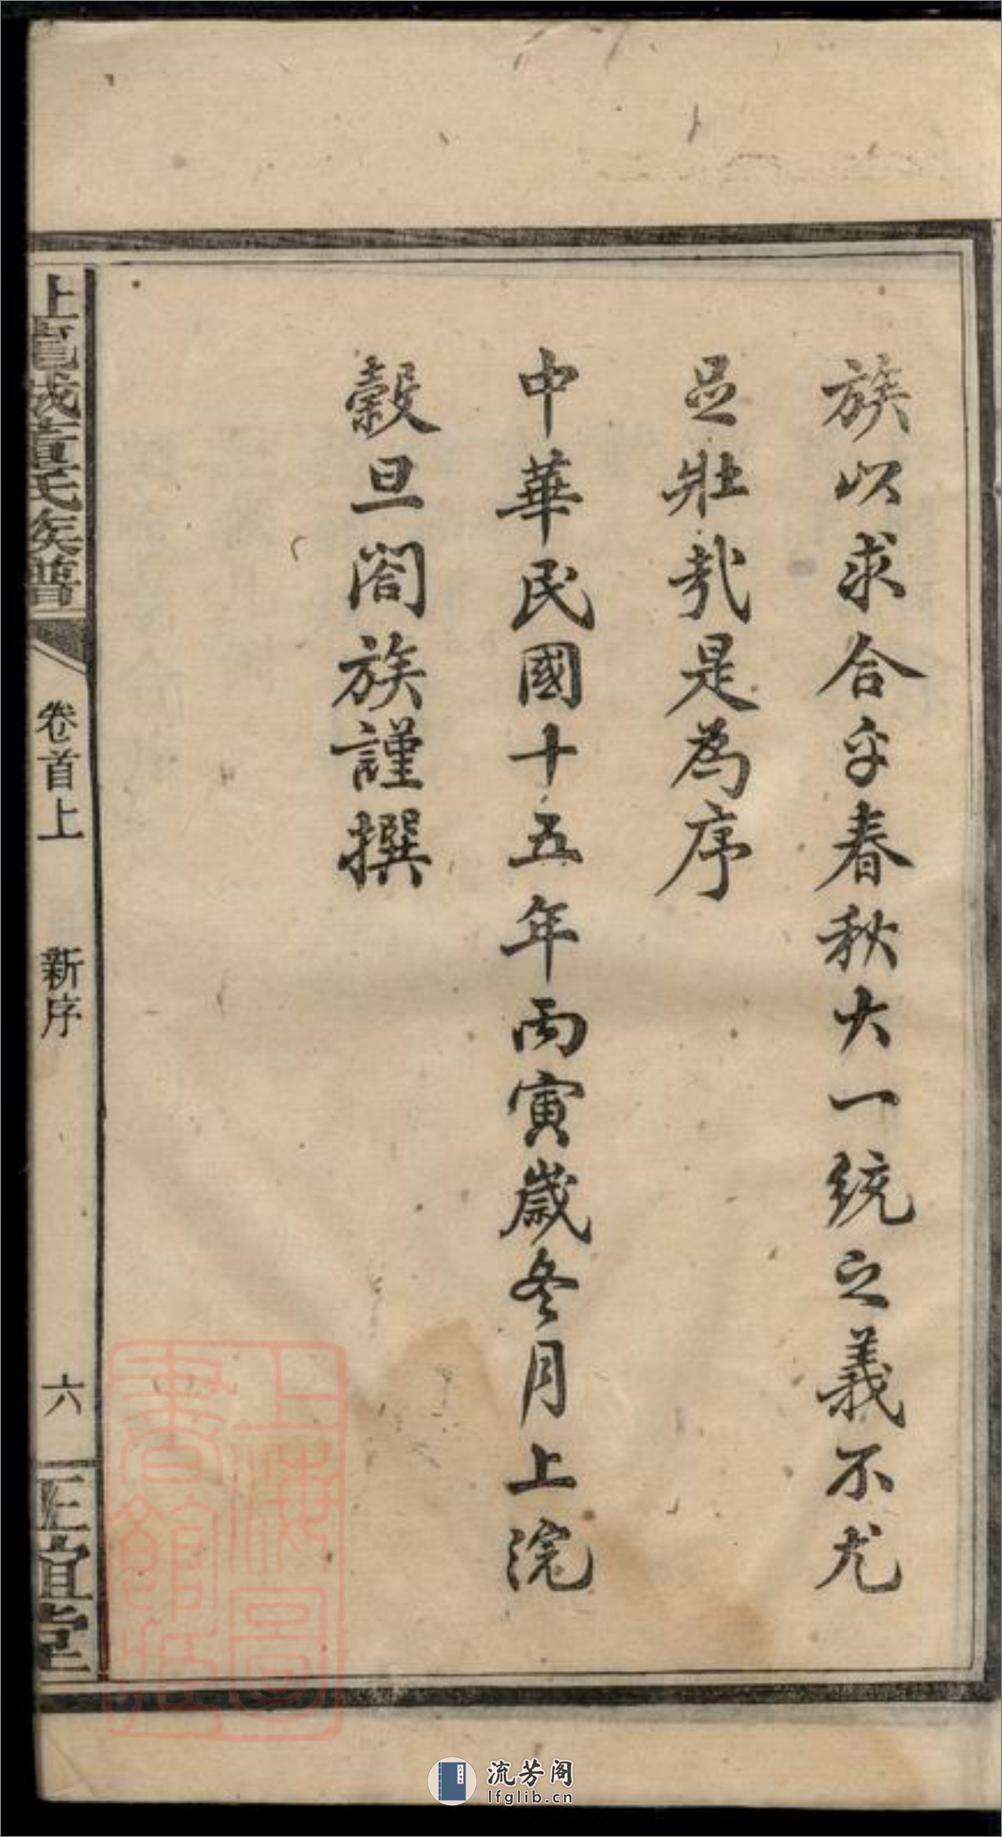 族以求合乎春秋大一統之義不尤
足壯哉是為序
中華民國十五年丙寅歲冬月上浣
穀旦閤族謹撰
上萬城董氏族譜
卷首上
新序
六
正誼堂
上海圖書館藏
流芳阁
lfglib.cn